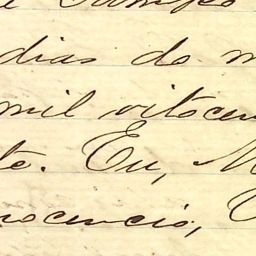 e Campo
dias do m
mil oitocen
te. Eu, M
nocencio,